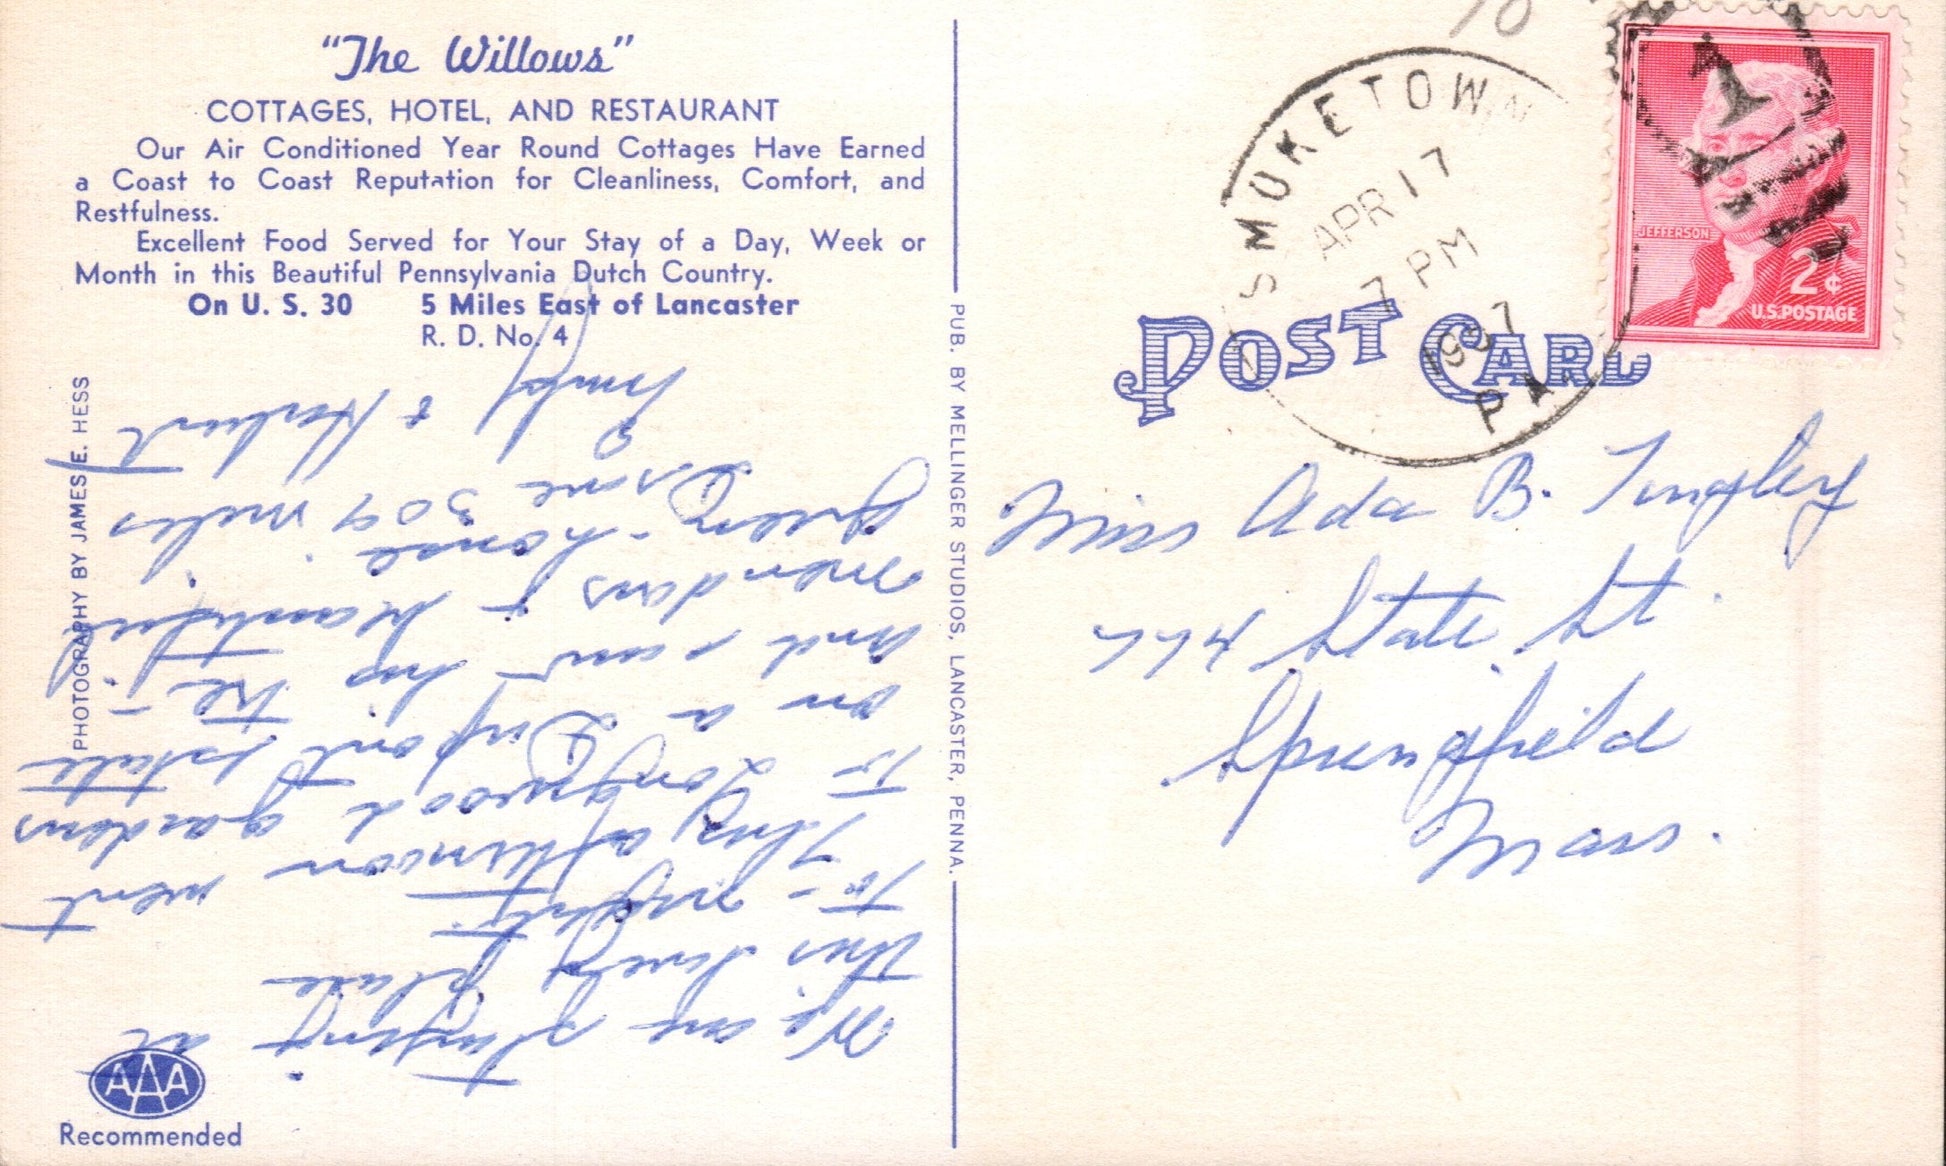 "The Willows"
COTTAGES, HOTEL, AND RESTAURANT
Our Air Conditioned Year Round Cottages Have Earned
a Coast to Coast Reputation for Cleanliness, Comfort, and
Restfulness.
Excellent Food Served for Your Stay of a Day, Week or
Month in this Beautiful Pennsylvania Dutch Country.
On U. S. 30 5 Miles East of Lancaster
R. D. No. 4
PHOTOGRAPHY BY JAMES E. HESS
We are staying at
this lovely place
to-night.
This afternoon went
to Longwood gardens
on a Dupont Estate
and saw his the
beautiful
green-house
Drove 309 miles
& Herbert
AAA
Recommended
PUB. BY MELLINGER STUDIOS, LANCASTER, PENNA.
70
SMUKETOWN
APR 17
7 PM
1957
PA.
JEFFERSON
2¢
U.S.POSTAGE
POST CARD
Miss Ada B. Tingley
State St.
Springfield
Mass.